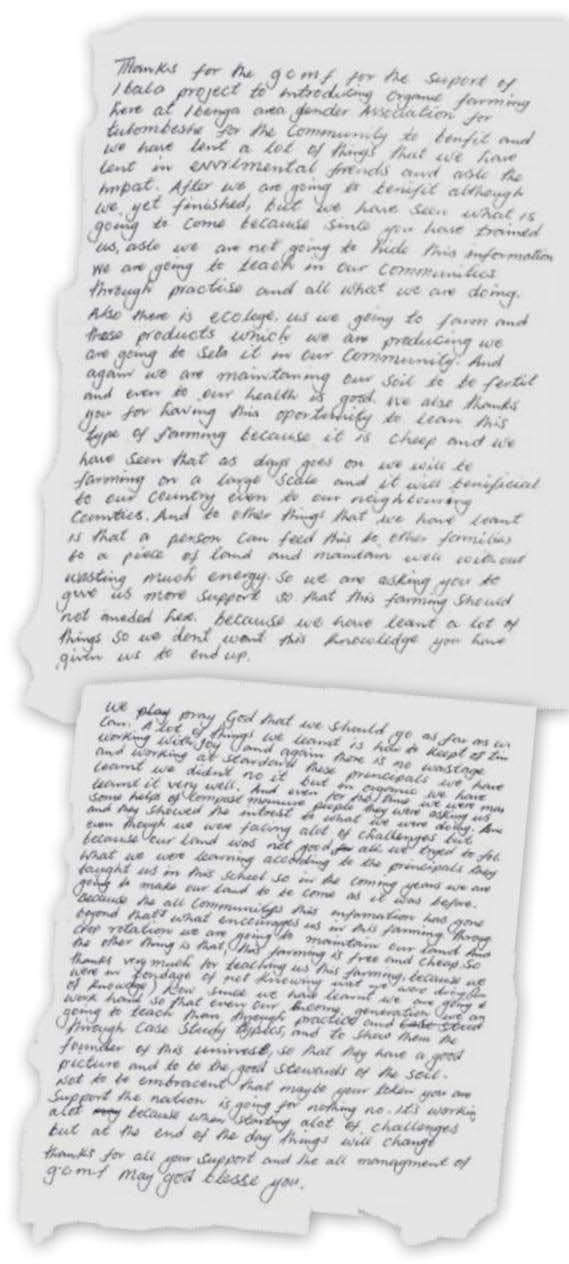 Thanks for the gomf for the suport of
Ibala project to introducing organic farming
here at Ibenga area gender Association for
tulombeshe for the Community to benfit and
we have lent a lot of things that we have
lent in envirimental frends and aslo the
impat. After we are going to benefit although
we yet finished, but we have seen what is
going to come because since you have trained
us, aslo we are not going to hide this information
we are going to teach in our communities
through practise and all what we are doing.
Also there is ecologe. us we going to farm and
these products which we are producing we
are going to sels it in our Community. And
again we are maintaning our soil to be fertil
and even to our health is good. we also thanks
you for having this oportunity to lean this
type of farming because it is cheep and we
have seen that as days goes on we will be
farming on a large scale and it will benificial
to our country even to our neighbouring
Counties. And to other things that we have leant
is that a person can feed this to other families
to a piece of land and maintain well without
wasting much energy. So we are asking you to
give us more support so that this farming should
not aneded here. because we have leant a lot of
things so we dont want this knowledge you have
given us to end up.
we play pray God that we should go as far as we
can. A lot of things we learnt is how to keept of
working with joy and again there is no wastage
and working at standard these principals we have
learnt we didn't no it but in organic we have
learnt it very well. And even for the time we were
some helps of compose manure people they were asking us
and they showed the intrest to what we were doing.
even though we were facing alot of challenges but
because our land was not good, all we tryed to
what we were learning according to the principals they
taught us in this school so in the coming years we are
going to make our land to be come as it was before.
because the all Communitys this infomation has gone
beyond that's what encourages us in this farming throug
crop rotation we are going to maintain our land And
the other thing is that, this farming is free and cheap. So
thanks very much for teaching us this farming. because we
were in bondage of not knowing wat we were doing
of knowledg, Now since we have learnt we are going to
work hard so that even our generation we are
going to teach them through practice and
through case study topics, and to show them the
founder of this universe, so that they have a good
picture and to be the good stewards of the soil.
Not to be embracent that maybe your you are
support the nation is going for nothing no. it's working
alot because when starting alot of challenges
but at the end of the day things will change
thanks for all your support and the all managment of
gomf may god blesse you.